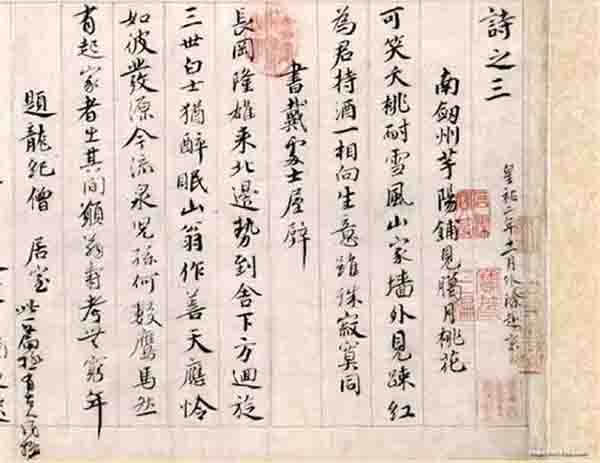 詩之三
皇祐二年十一月外除赴京
南劔州芋陽鋪見臘月桃花
可笑夭桃耐雪風山家墻外見疎紅
為君持酒一相向生意雖殊寂寞同
書戴處士屋壁
長岡隆雄來北邊勢到舍下方迴旋
三世白士猶醉眠山翁作善天應怜
如彼發源今流泉兒孫何數鴈馬然
有起家者出其間願翁壽考無窮年
題龍紀僧居室 此一篇極有古人風格